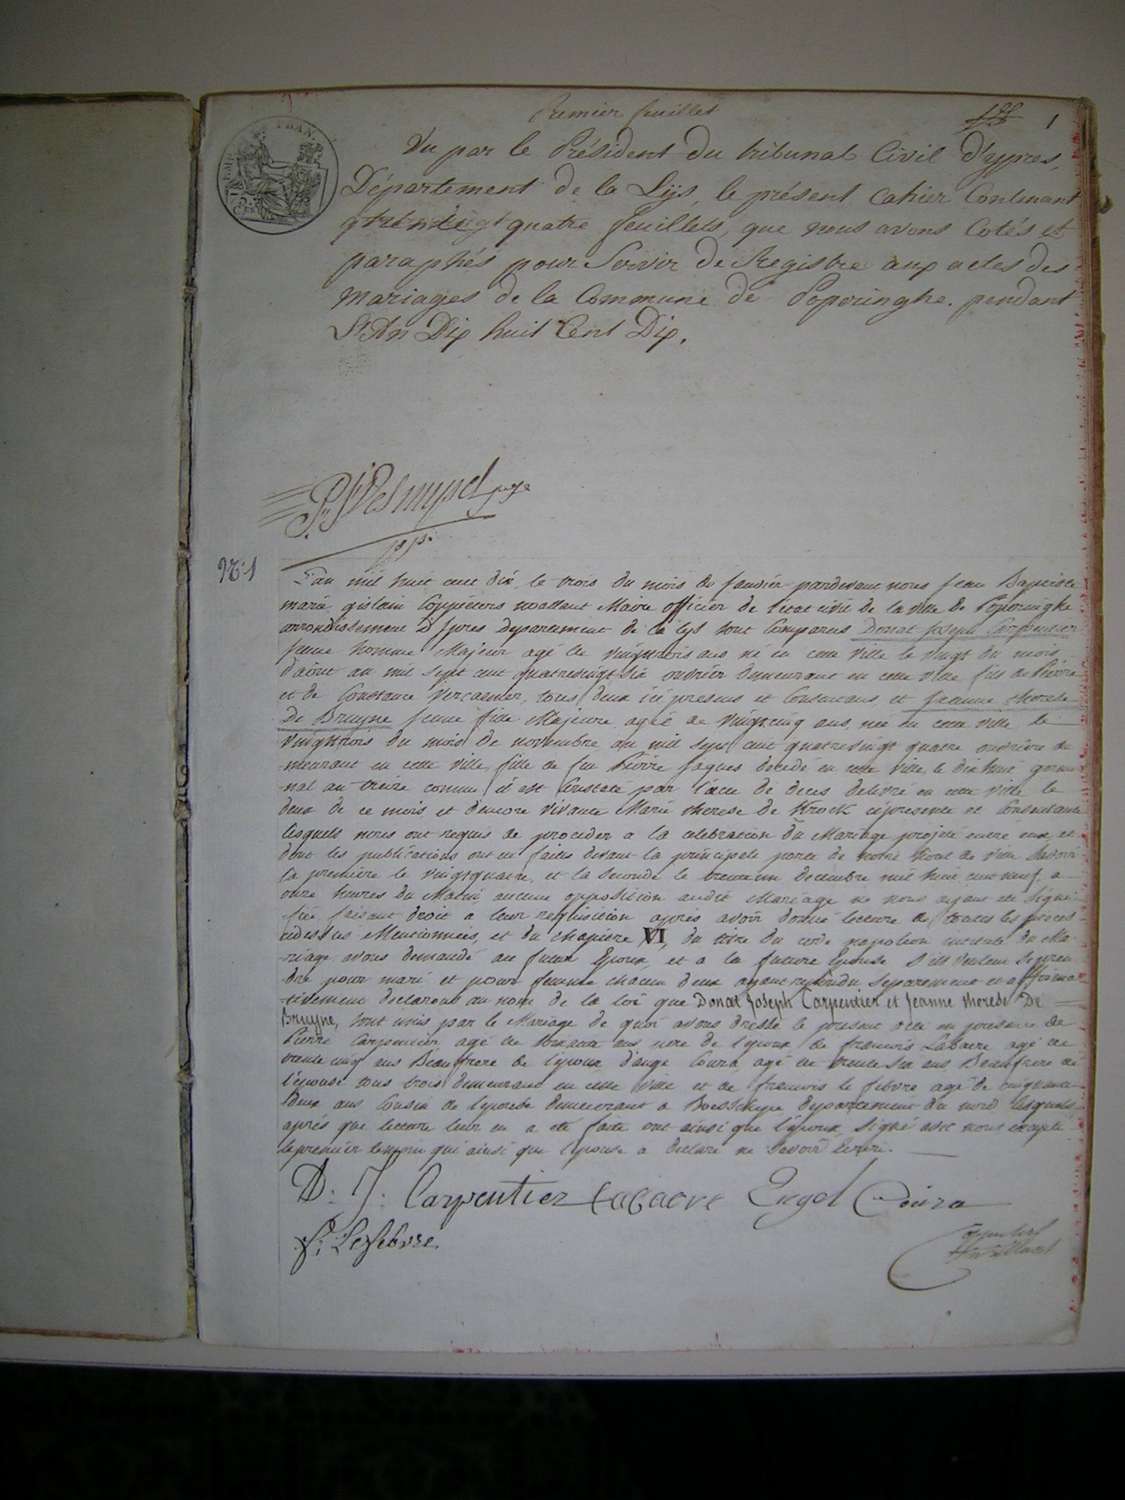 Premier feuillet
1
Vu par le Président du tribunal Civil d'ypres,
Département de la Lÿs, le présent Cahier Contenant
quatre feuillets, que nous avons Cotés et
paraphés pour Servir de Registre aux actes des
Mariages de la Commune de Poperinghe. pendant
L'An Dix huit Cent Dix.
juge
N.º 1
L'an mil huit cent dix le trois du mois de Janvier pardevant nous Jean Baptiste
marie gislain Coppieters Maire officier de l'etat civil de la ville de Poperinghe
arrondissement d'Ypres departement de la Lys sont Comparus Donat Joseph Carpentier
jeune homme Majeur agé de vingttrois ans né en cette ville le vingt du mois
d'août an mil sept cent quatrevingt six ouvrier demeurant en cette ville fils de Pierre
et de Constance Vercamer, tous deux ici presens et Consentans et Jeanne therese
De Bruyne jeune fille Majeure agée de vingtcinq ans née en cette ville le
vingttrois du mois de novembre an mil sept cent quatrevingt quatre ouvrière de
meurant en cette ville fille de feu Pierre Jaques decedé en cette ville le dixhuit germi
nal an treize comme il est Constaté par l'acte de deces delivré en cette ville le
deux de ce mois et d'encore vivante Marie therese de Krock ici presente et Consentante
lesquels nous ont requis de proceder a la celebration du Mariage projeté entre eux et
dont les publications ont été faites devant la principale porte de notre hotel de ville Savoir
la première le vingtquatre, et la Seconde le trente un decembre mil huit cent neuf a
onze heures du Matin aucune opposition audit Mariage ne nous ayant été signi
fiée faisant droit a leur requisition après avoir donné lecture de toutes les pieces
cidessus Mentionnées, et du chapitre VI, du titre du code napoleon intitulé du Ma
riage, avons demandé au futur Epoux et a la future Epouse s'ils veulent se pren
dre pour mari et pour femme chacun deux ayant repondu separement et affirma
tivement declarons au nom de la loi que Donat Joseph Carpentier et Jeanne therese De
Bruyne, sont unis par le Mariage de quoi avons dressé le present acte en presence de
Pierre Carpentier agé de ans pere de l'epoux de francois Labaere agé de
trente cinq ans Beaufrere de l'epoux d'ange Coura agé de trente six ans Beaufrere de
l'epouse tous trois demeurans en cette ville et de francois le febvre agé de cinquante
deux ans Cousin de l'epouse demeurant a Boesschepe departement du nord lesquels
après que lecture leur en a été faite ont ainsi que l'epoux signé avec nous excepté
le premier temoin qui ainsi que l'epouse a declaré ne savoir Ecrire.
D: J: Carpentier Labaere Engel Coura
f: Lefebvre